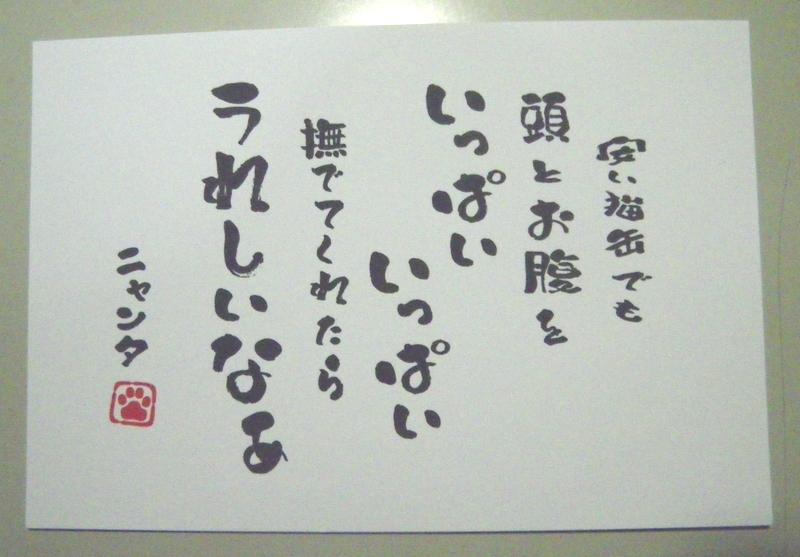 安い猫缶でも
頭とお腹を
いっぱい
いっぱい
撫でてくれたら
うれしいなぁ
ニャンタ